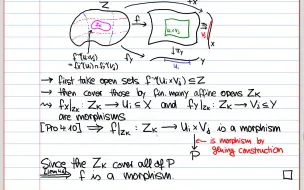 Z
f
U_i×V_j
V_j
X
f⁻¹(U_i×V_j)
= f_X⁻¹(U_i) ∩ f_Y⁻¹(V_j)
f_Y
π_Y
U_i
Y
→ first take open sets f⁻¹(U_i×V_j) ⊆ Z
→ then cover those by fin. many affine opens Z_k
⇝ f_X|_{Z_k} : Z_k → U_i ⊆ X and f_Y|_{Z_k} : Z_k → V_j ⊆ Y
are morphisms
[Pro 4.10] ⟹ f|_{Z_k} : Z_k → U_i×V_j is a morphism
↓ ← is morphism by
P gluing construction
Since the Z_k cover all of P
⟹ f is a morphism. □